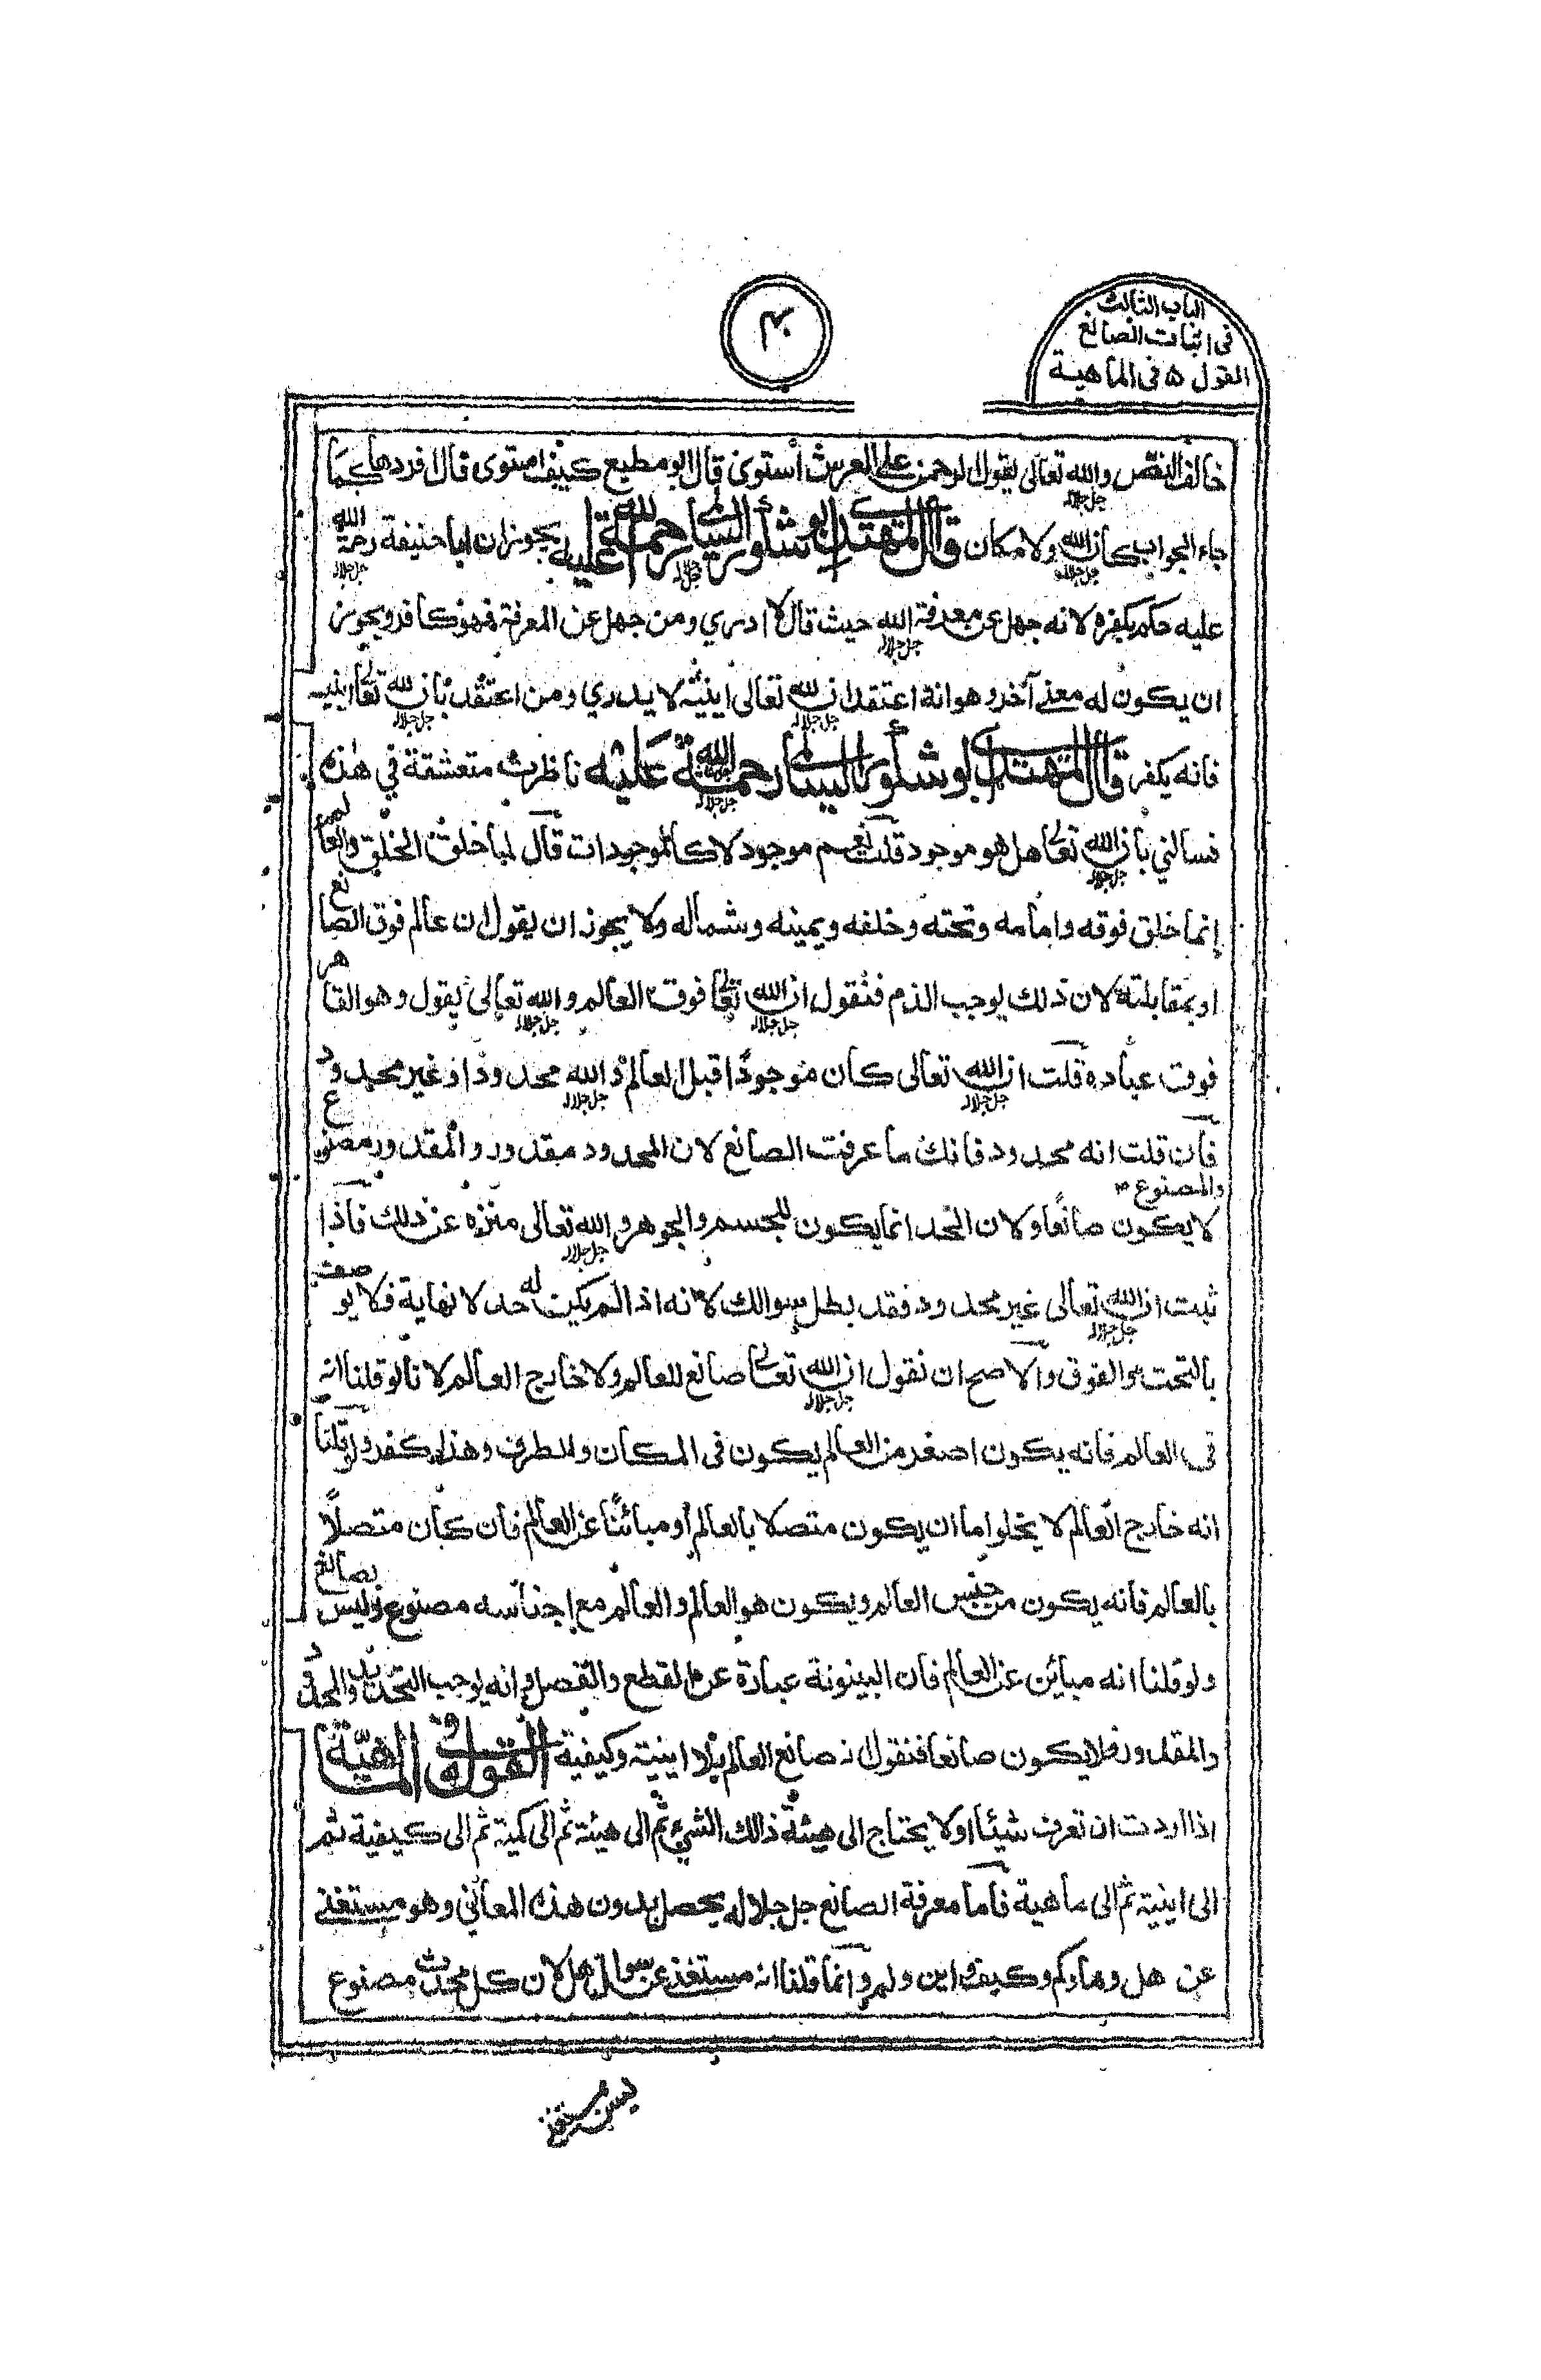 الباب الثالث
فى اثبات الصانع
القول ٥ فى الماهية
خالف النقص والله تعالى يقول الرحمن على العرش أستوى قال ابو مطيع كيف استوى قال اقرد ها كما
جاء الجواب كان الله ولا مكان قال المهتدى ابو شكور السالمى رحمة الله عليه يجوز ان ابا حنيفة رحمة الله
عليه حكم بكفره لانه جهل عن معرفة الله حيث قال لا ادري ومن جهل عن المعرفة فهو كافر ويجوز
ان يكون له معنى آخر وهو انه اعتقد ان لله تعالى اينية لا يدري ومن اعتقد بان لله تعالى اينية
فانه يكفر قال المهتدى ابو شكور السالمى رحمة الله عليه ناظرت متعشقة في هذه
فسالني بان الله تعالى هل هو موجود قلت نعم موجود لا كالموجودات قال لما خلق الخلق والعالم
انما خلق فوقه وامامه وتحته وخلفه ويمينه وشماله ولا يجوز ان يقول ان عالم فوق الصانع
او بمقابلته لان ذلك يوجب الذم فنقول ان الله تعالى فوق العالم والله تعالى يقول وهو القاهر
فوق عباده قلت ان الله تعالى كان موجودًا قبل العالم والله محدودًا او غير محدود
فان قلت انه محدود فانك ما عرفت الصانع لان المحدود مقدور والمقدور مصنوع
والمصنوع
لا يكون صانعًا ولان الحد انما يكون للجسم والجوهر والله تعالى منزه عن ذلك فاذا
ثبت ان الله تعالى غير محدود فقد بطل سوالك لانه اذا لم يكن له حد لا نهاية فلا يوصف
بالتحت والفوق والاصح ان نقول ان الله تعالى صانع للعالم ولا خارج العالم لانا لو قلنا انه
فى العالم فانه يكون اصغر من العالم يكون فى المكان والطرف وهذا كفر ولو قلنا
انه خارج العالم لا يخلوا ما ان يكون متصلا بالعالم أو مبائنًا عن العالم فان كان متصلاً
بالعالم فانه يكون من جنس العالم ويكون هو العالم والعالم مع اجناسه مصنوع وليس بصانع
ولو قلنا انه مبائن عن العالم فان البينونة عبارة عن القطع والفصل وانه يوجب التحديد والمحدود
والمقدور فلا يكون صانعا فنقول ان صانع العالم بلا اينية وكيفية القول ٥ فى الماهيّة
اذا اردت ان تعرف شيئا اولا يحتاج الى هيئة ذالك الشئ ثم الى هيئة ثم الى كمية ثم الى كيفية ثم
الى اينية ثم الى ماهية فاما معرفة الصانع جل جلاله يحصل بدون هذه المعانى وهو مستغنى
عن هل وما وكم وكيف واين ولم وانما قلنا انه مستغنى عن سوال هل لان كل محدث مصنوع